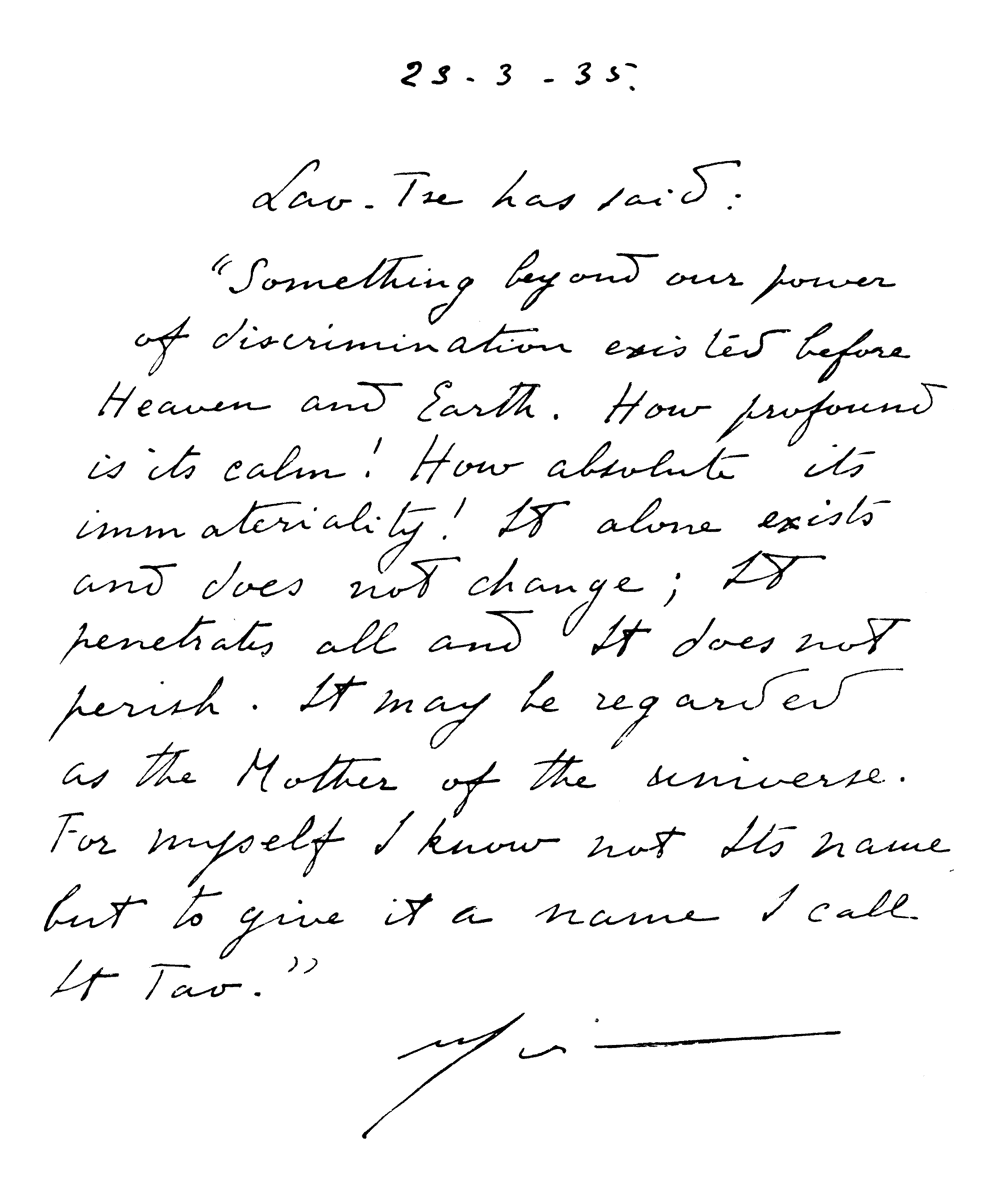 23-3-35.
Lao-Tse has said:
"Something beyond our power
of discrimination existed before
Heaven and Earth. How profound
is its calm! How absolute its
immateriality! It alone exists
and does not change; It
penetrates all and It does not
perish. It may be regarded
as the Mother of the universe.
For myself I know not Its name
but to give it a name I call
It Tao."